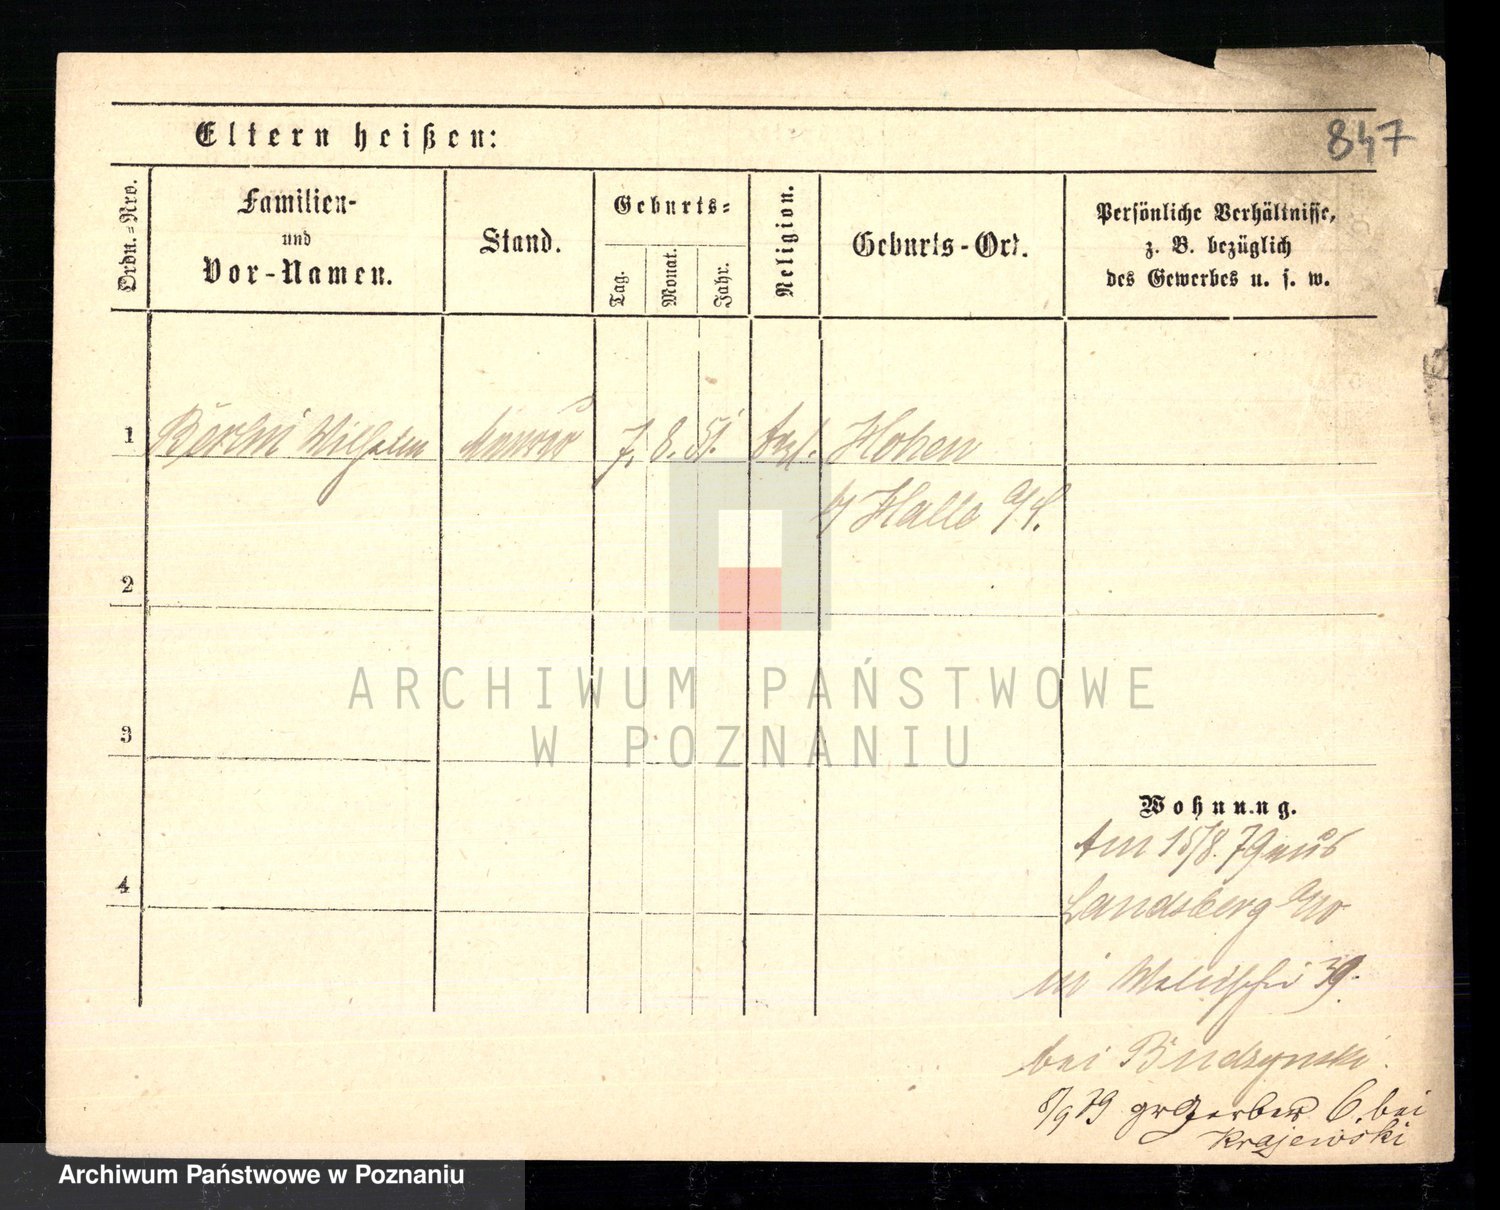 Eltern heißen:
847
Ordn.-Nro.
Familien-
und
Vor-Namen.
Stand.
Geburts-
Tag.
Monat.
Jahr.
Religion.
Geburts-Ort.
Persönliche Verhältnisse,
z. B. bezüglich
des Gewerbes u. s. w.
1 Berlin Wilhelm Maurer 7. 8. 51. Hohen
b/ Halle a/S.
2
3
4
Wohnung.
Am 15/8. 79 aus
Landsberg a/W
in Wallischei 39.
bei Budzynski.
8/9 79 gr Gerber 6. bei
Krajewski
ARCHIWUM PAŃSTWOWE
W POZNANIU
Archiwum Państwowe w Poznaniu